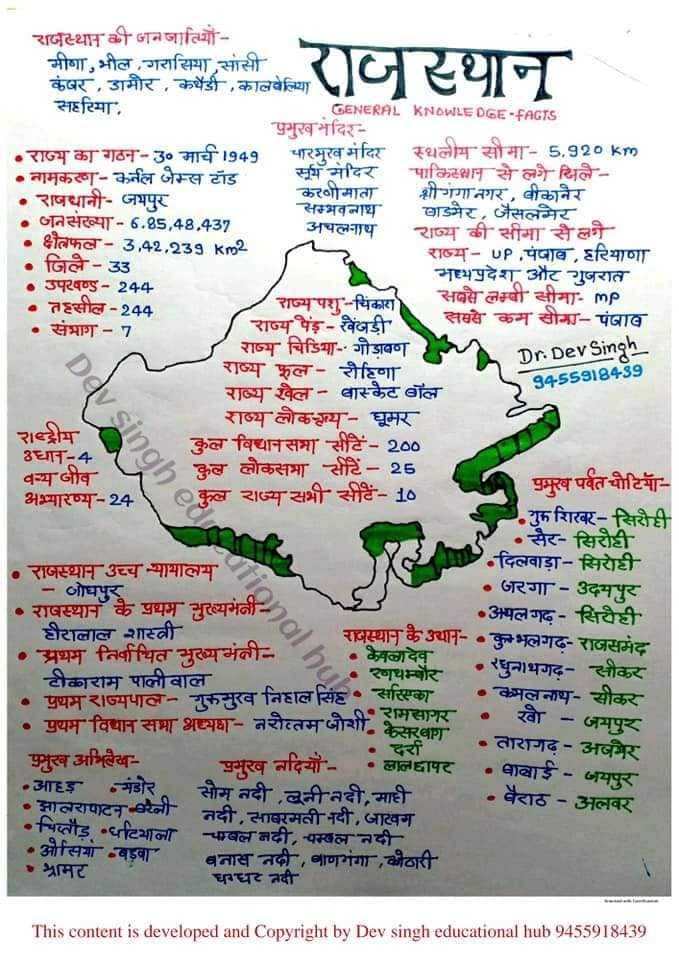 राजस्थान की जनजातियाँ-
मीणा, भील, गरासिया, सांसी
कंजर, डामोर, कथौडी, कालबेलिया
सहरिया.
राजस्थान
GENERAL KNOWLEDGE-FACTS
• राज्य का गठन - 30 मार्च 1949
• नामकरण - कर्नल जेम्स टॉड
• राजधानी - जयपुर
• जनसंख्या - 6.85,48,437
• क्षेत्रफल - 3,42,239 Km2
• जिले - 33
• उपखण्ड - 244
• तहसील - 244
• संभाग - 7
प्रमुख मंदिर-
पारसुख मंदिर
सूर्य मंदिर
करणी माता
सम्भवनाथ
अचलनाथ
स्थलीय सीमा - 5,920 Km
पाकिस्तान से लगे जिले -
श्रीगंगानगर, बीकानेर
बाडमेर, जैसलमेर
राज्य की सीमा से लगे
राज्य - UP, पंजाब, हरियाणा
मध्यप्रदेश और गुजरात
सबसे लम्बी सीमा - MP
सबसे कम सीमा - पंजाब
Dr. Dev Singh
9455918439
राज्य पशु - चिंकारा
राज्य पेड़ - खेजडी
राज्य चिडिया - गोडावण
राज्य फूल - रोहिणा
राज्य खेल - बास्केट बॉल
राज्य लोकनृत्य - घूमर
कुल विधानसभा सीटें - 200
कुल लोकसभा सीटें - 25
कुल राज्य सभी सीटें - 10
राष्ट्रीय
उधान - 4
वन्य जीव
अभ्यारण्य - 24
Dev singh educational hub
प्रमुख पर्वत चोटियाँ-
• गुरु शिखर - सिरोही
• सेर - सिरोही
• दिलवाड़ा - सिरोही
• जरगा - उदयपुर
• अचलगढ़ - सिरोही
• कुम्भलगढ़ - राजसमंद
• रघुनाथगढ़ - सीकर
• कमलनाथ - सीकर
• खो - जयपुर
• तारागढ़ - अजमेर
• बाबाई - जयपुर
• बैराठ - अलवर
• राजस्थान उच्च न्यायालय
- जोधपुर
• राजस्थान के प्रथम मुख्यमंत्री -
हीरालाल शास्त्री
• प्रथम निर्वाचित मुख्य मंत्री -
टीकाराम पालीवाल
• प्रथम राज्यपाल - गुरुमुख निहाल सिंह
• प्रथम विधान सभा अध्यक्ष - नरोत्तम जोशी
राजस्थान के उधान -
• केवलादेव
• रणथम्भौर
• सरिस्का
• रामसागर
• केसरबाग
• दर्रा
• लालछापर
प्रमुख अभिलेख-
• आहड़ • मंडोर
• झालरापाटन
• चित्तौड़ • घटियाला
• ओसियां • बड़वा
• भ्रामर
प्रमुख नदियाँ-
सोम नदी, लूनी नदी, माही
नदी, साबरमती नदी, जाखम
चम्बल नदी, चम्बल नदी
बनास नदी, बाणगंगा, कोठारी
घग्घर नदी
This content is developed and Copyright by Dev singh educational hub 9455918439